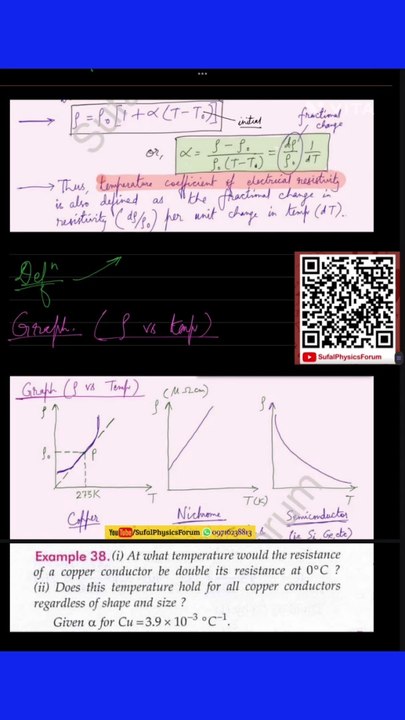 ρ = ρ₀ [1 + α (T – T₀)]
initial
fractional change
or, α = (ρ – ρ₀) / (ρ₀ (T – T₀)) = (dρ/ρ₀) 1/dT
Thus, temperature coefficient of electrical resistivity
is also defined as "the fractional change in
resistivity (dρ/ρ₀) per unit change in temp (dT).
Defⁿ
Graph. (ρ vs temp)
SufalPhysicsForum
Graph (ρ vs Temp)
ρ
ρ₀
P
273K
T
Copper
ρ
(μΩcm)
T(K)
Nichrome
ρ
T
Semiconductor
(ie Si Ge, etc)
YouTube/SufalPhysicsForum 09716238813
Example 38. (i) At what temperature would the resistance
of a copper conductor be double its resistance at 0°C ?
(ii) Does this temperature hold for all copper conductors
regardless of shape and size ?
Given α for Cu = 3.9 × 10⁻³ °C⁻¹.